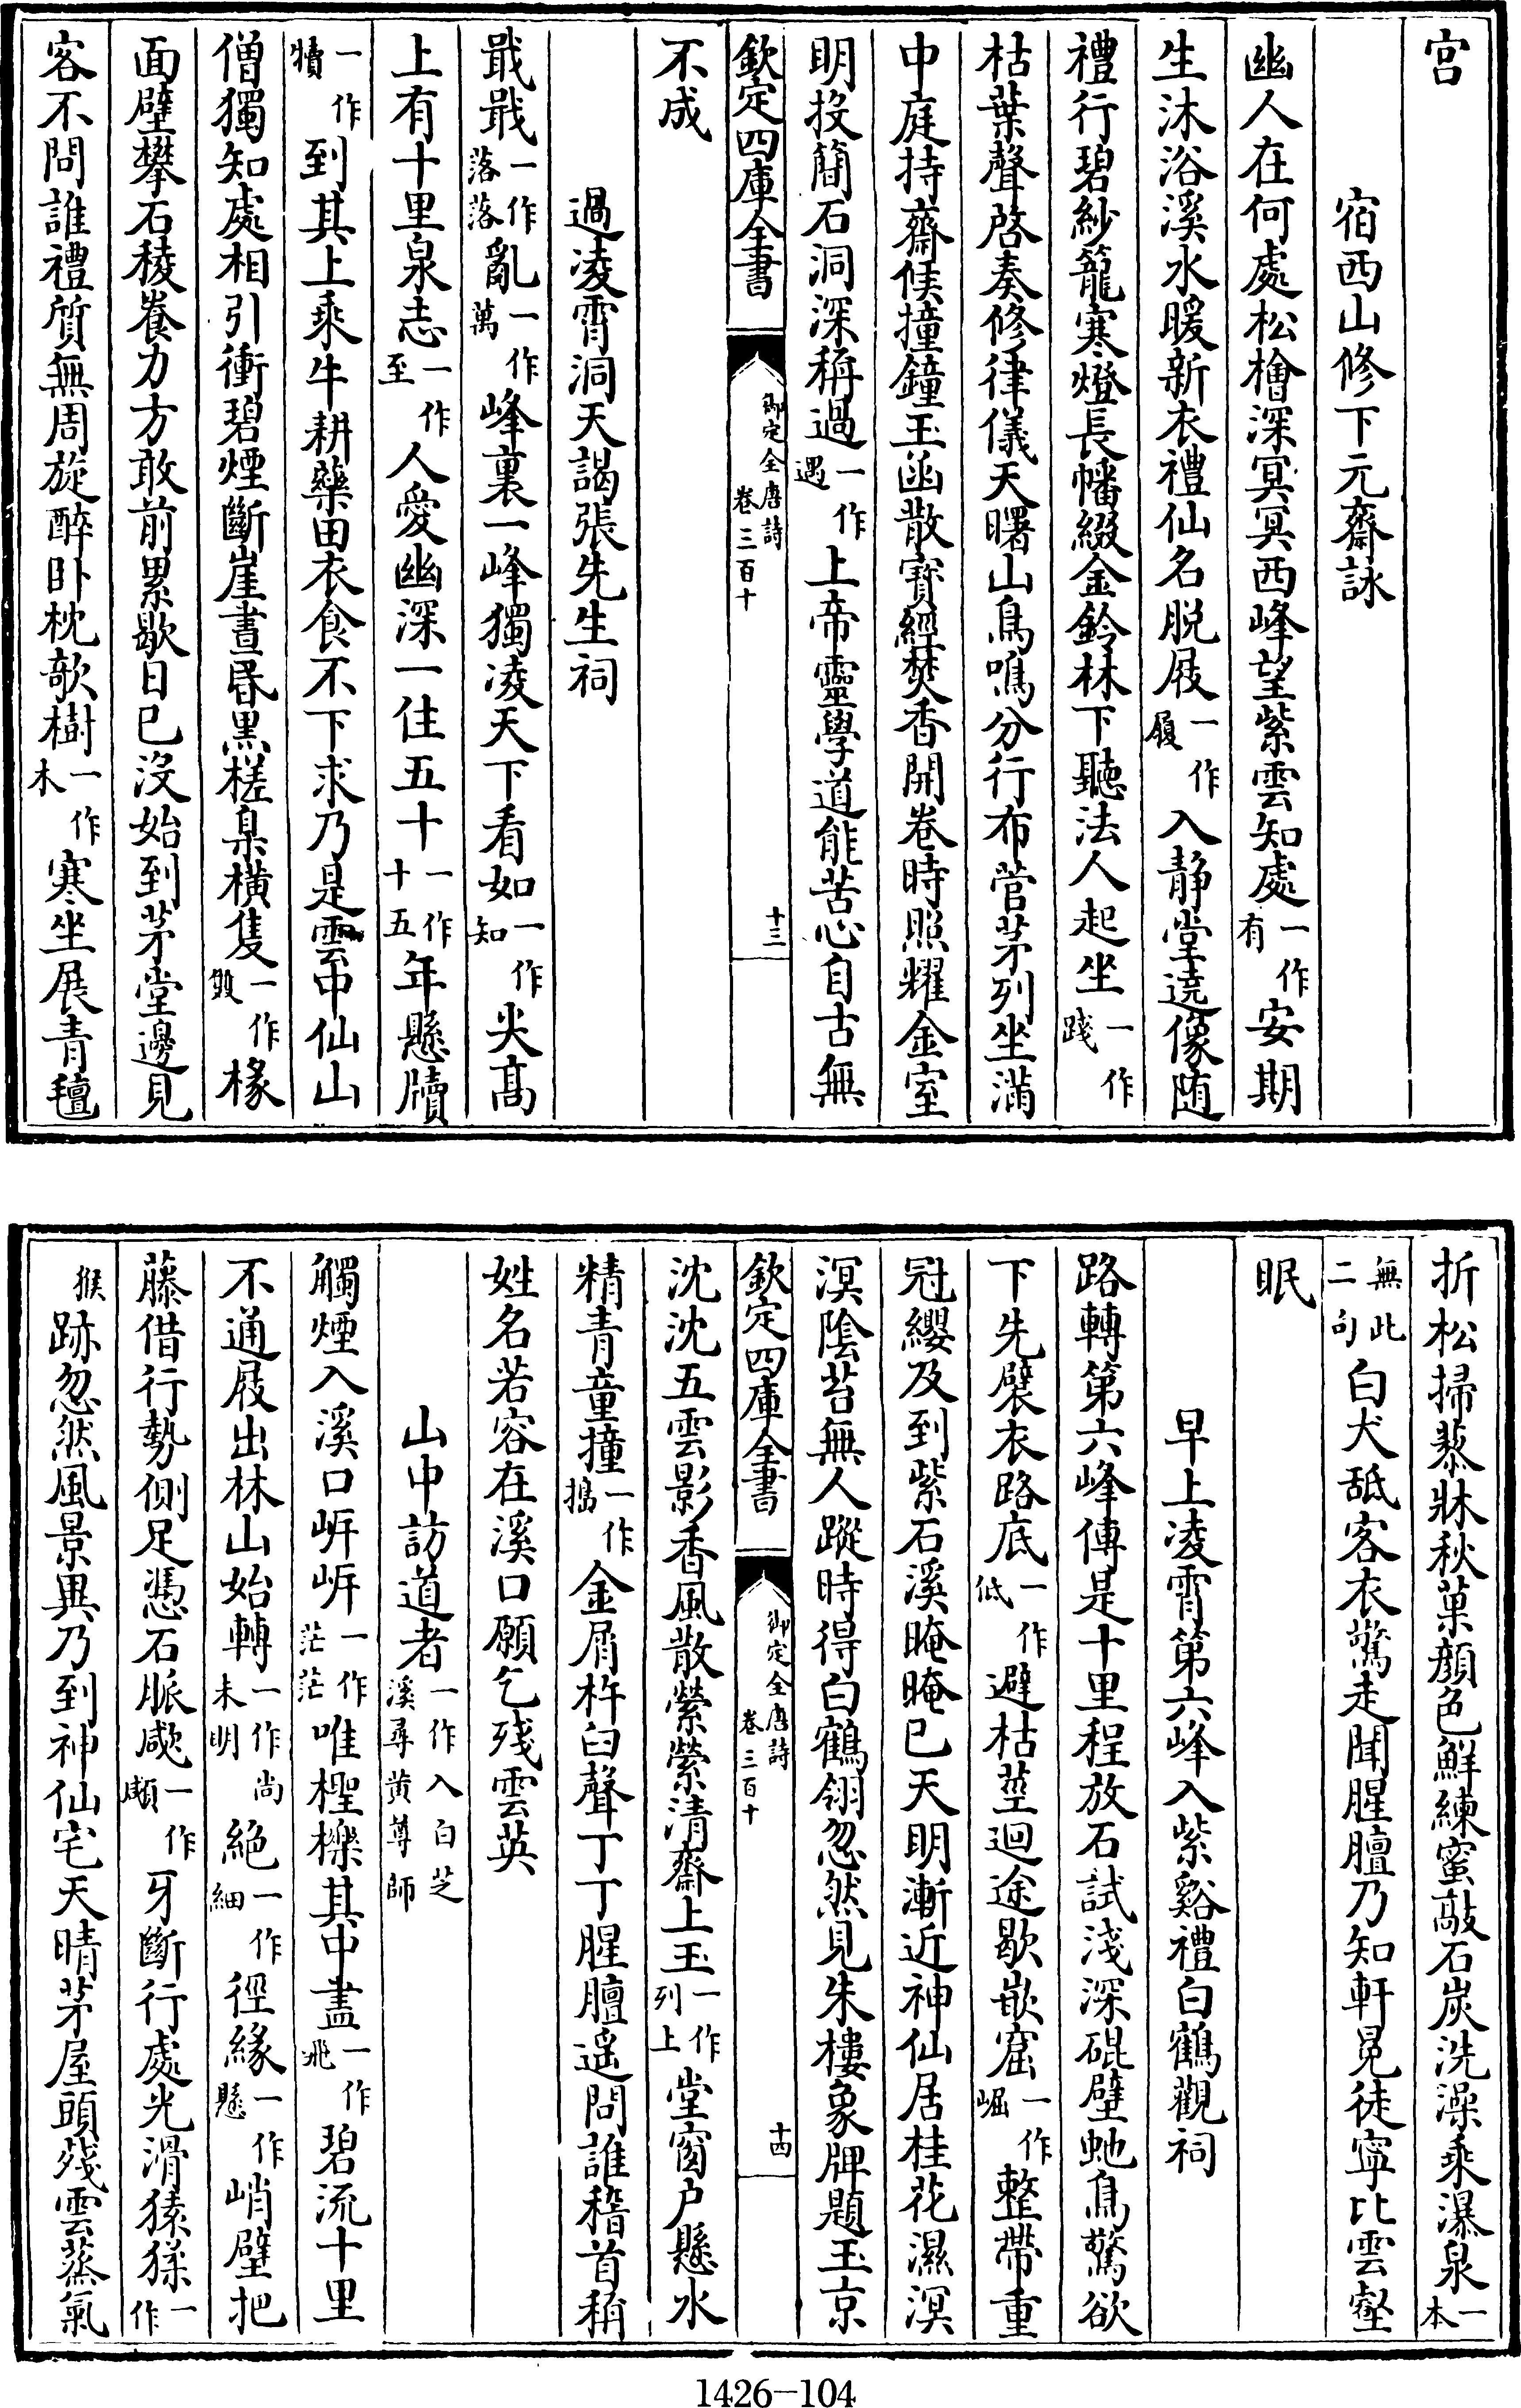 宫
宿西山修下元齋詠
幽人在何處松檜深冥冥西峰望紫雲知處一作有安期
生沐浴溪水暖新衣禮仙名脱屐一作履入靜堂遶像隨
禮行碧紗籠寒燈長幡綴金鈴林下聽法人起坐一作踐
枯葉聲啓奏修律儀天曙山鳥鳴分行布菅茅列坐滿
中庭持齋候撞鐘玉函散寳經焚香開卷時照耀金室
明投簡石洞深稱過一作遇上帝靈學道能苦心自古無
欽定四庫全書
御定全唐詩
卷三百十
十三
不成
過凌霄洞天謁張先生祠
戢戢一作落落亂一作萬峰裏一峰獨凌天下看如一作知尖髙
上有十里泉志一作至人愛幽深一住五十一作十五年懸牘
一作犢到其上乘牛耕藥田衣食不下求乃是雲中仙山
僧獨知處相引衝碧煙斷崖晝昏黑槎臬横隻一作毁椽
面壁攀石稜養力方敢前累歇日已没始到茅堂邊見
客不問誰禮質無周旋醉卧枕欹樹一作木寒坐展青氊
折松掃藜牀秋菓顔色鮮練蜜敲石炭洗澡乘瀑泉一本
無此二句白犬舐客衣驚走聞腥膻乃知軒冕徒寧比雲壑
眠
早上凌霄第六峰入紫谿禮白鶴觀祠
路轉第六峰傳是十里程放石試淺深硠壁蛇鳥驚欲
下先襞衣路底一作低避枯莖迴途歇嵌窟一作崛整帶重
冠纓及到紫石溪晻晻已天明漸近神仙居桂花濕溟
溟陰苔無人蹤時得白鶴翎忽然見朱樓象牌題玉京
欽定四庫全書
御定全唐詩
卷三百十
十四
沈沈五雲影香風散縈縈清齋上玉一作列上堂窗户懸水
精青童撞一作搗金屑杵臼聲丁丁腥膻遥問誰稽首稱
姓名若容在溪口願乞殘雲英
山中訪道者一作入白芝溪尋黄尊師
觸煙入溪口岍岍一作茫茫唯檉櫟其中盡一作飛碧流十里
不通屐出林山始轉一作尚未明絶一作細徑緣一作懸峭壁把
藤借行勢側足憑石脈歔一作巘牙斷行處光滑猿猱一作
猴跡忽然風景異乃到神仙宅天晴茅屋頭殘雲蒸氣
1426—104